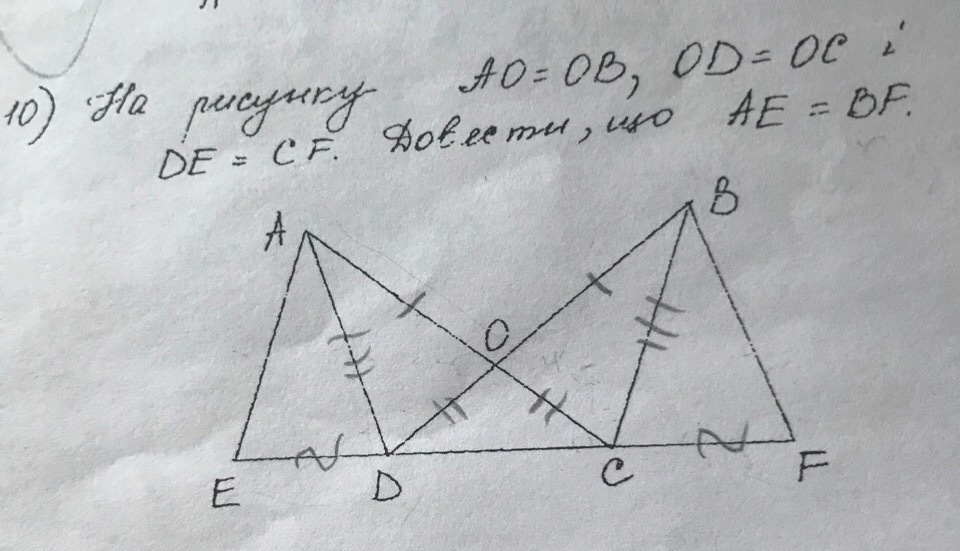 10) На рисунку AO = OB, OD = OC і
DE = CF. Довести, що AE = BF.
A
B
O
E
D
C
F